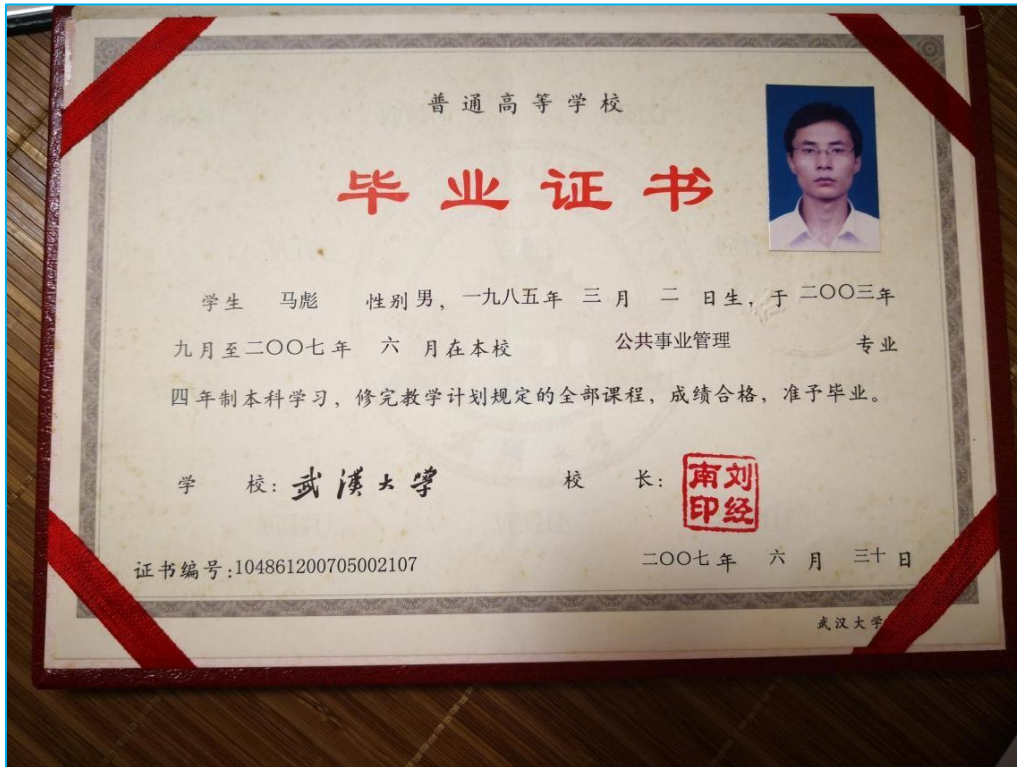 普通高等学校
毕业证书
学生 马彪 性别 男，一九八五年 三 月 二 日生，于 二〇〇三年
九月至二〇〇七年 六 月在本校 公共事业管理 专业
四年制本科学习，修完教学计划规定的全部课程，成绩合格，准予毕业。
学 校：武漢大学 校 长：刘经南印
证书编号:104861200705002107 二〇〇七年 六 月 三十 日
武汉大学